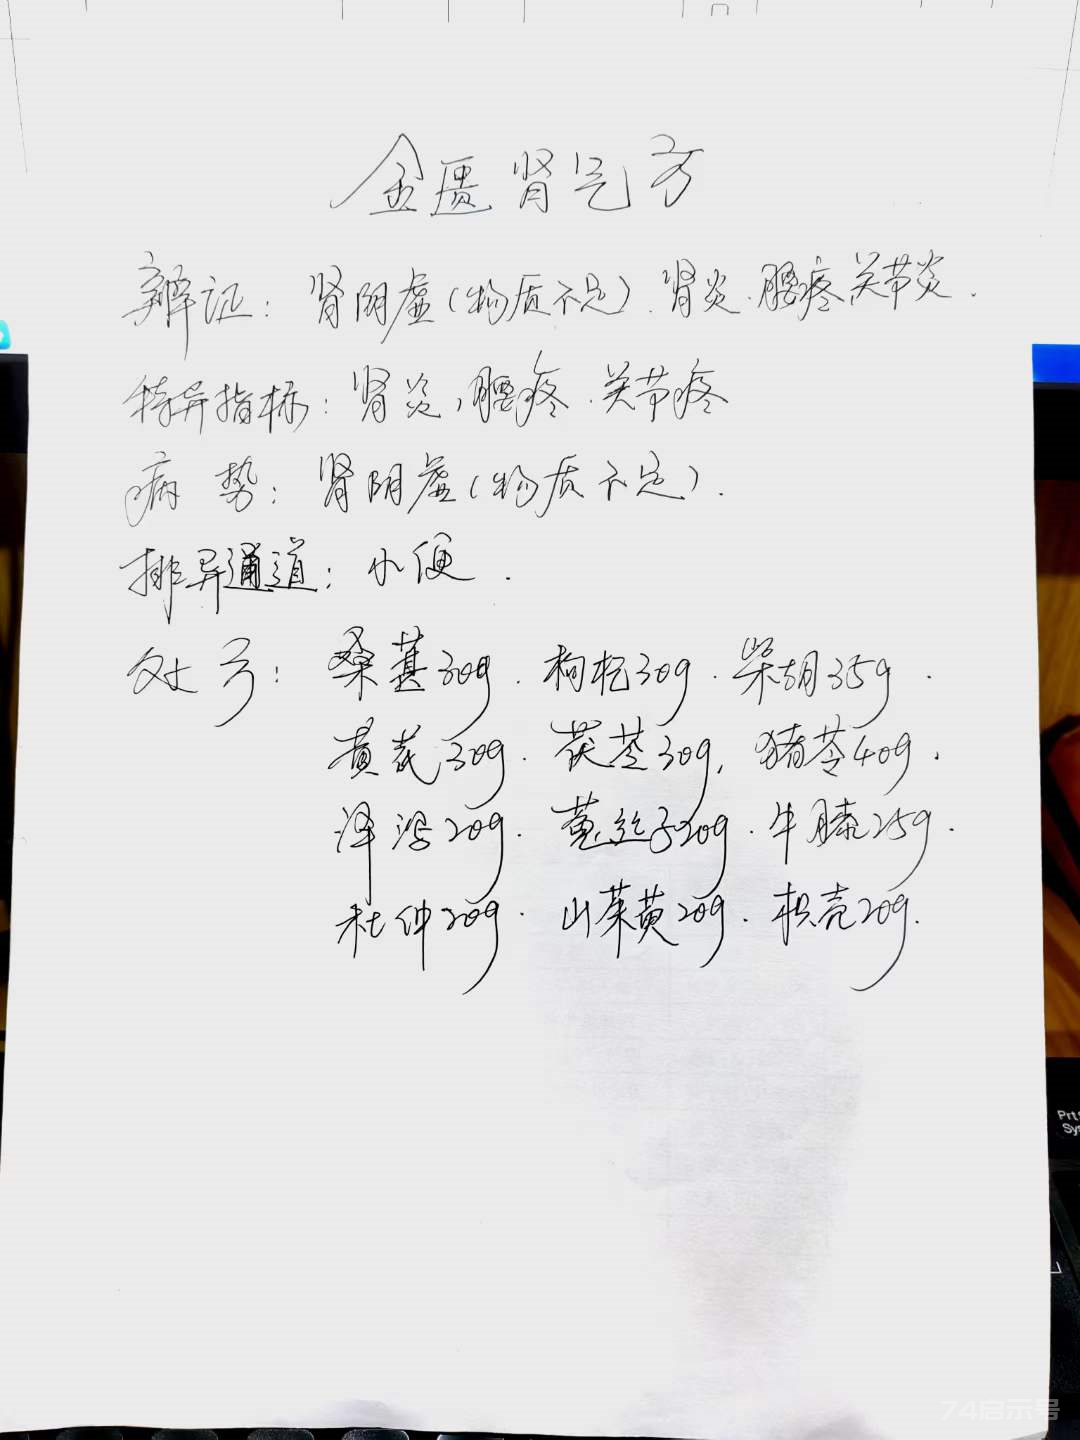 金匮肾气方
辨证：肾阴虚（物质不足）.肾炎.腰疼关节炎.
特异指标：肾炎,腰疼.关节疼
病势：肾阴虚（物质不足）.
排异通道：小便.
处方：桑葚30g.枸杞30g.柴胡35g.
黄芪30g.茯苓30g,猪苓40g.
泽泻20g.菟丝子20g.牛膝25g.
杜仲20g.山茱萸20g.枳壳20g.
Prt
Sys
74启示号